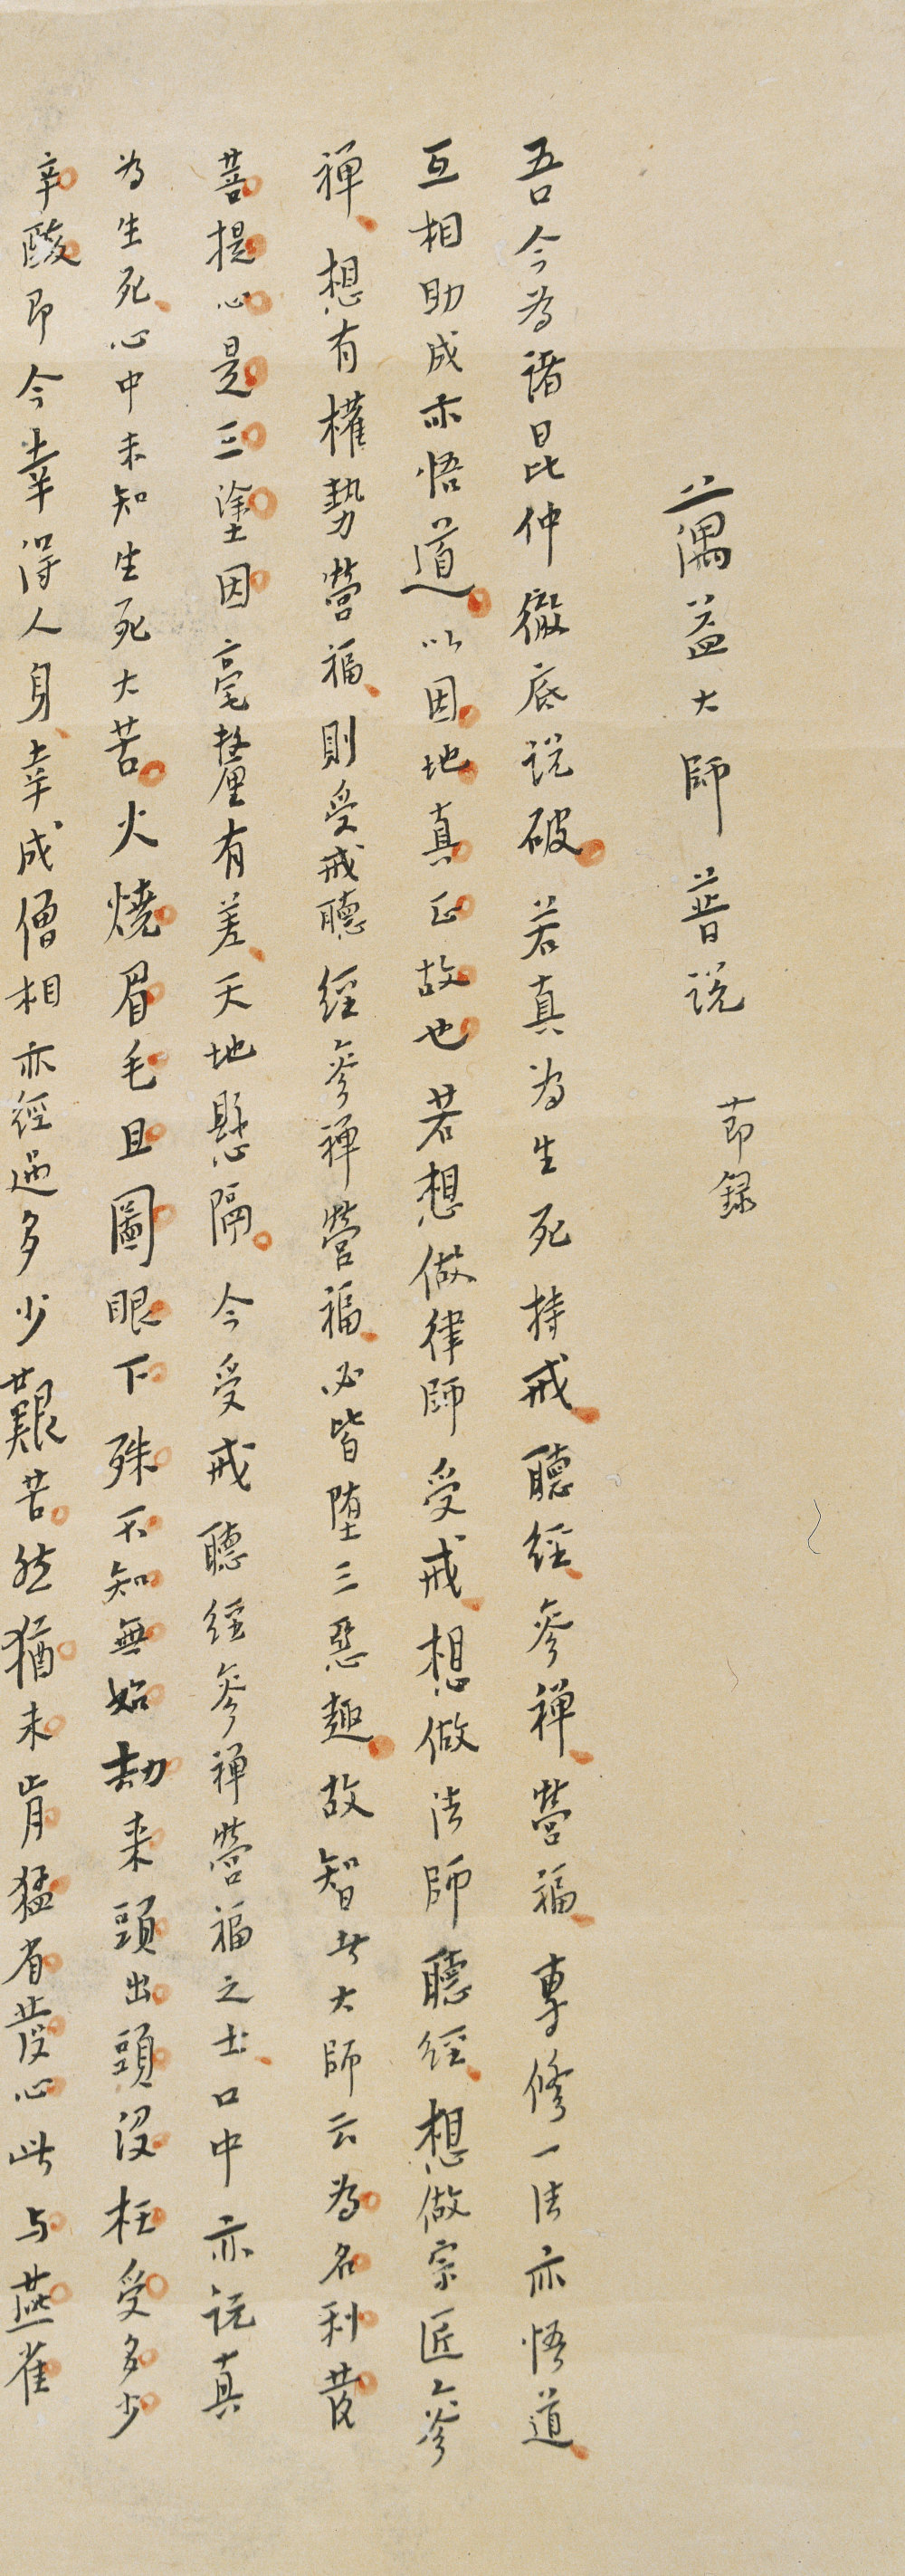 蕅益大師普說 節録
吾今為諸昆仲徹底説破若真為生死持戒聽經參禪營福專修一法亦悟道
互相助成亦悟道以因地真正故也若想做律師受戒想做法師聽經想做宗匠參
禪想有權勢營福則受戒聽經參禪營福必皆墮三惡趣故智者大師云為名利發
菩提心是三塗因毫釐有差天地懸隔今受戒聽經參禪營福之士口中亦説真
為生死心中未知生死大苦火燒眉毛且圖眼下殊不知無始劫来頭出頭没枉受多少
辛酸即今幸得人身幸成僧相亦經過多少艱苦然猶未肯猛省發心此与燕雀